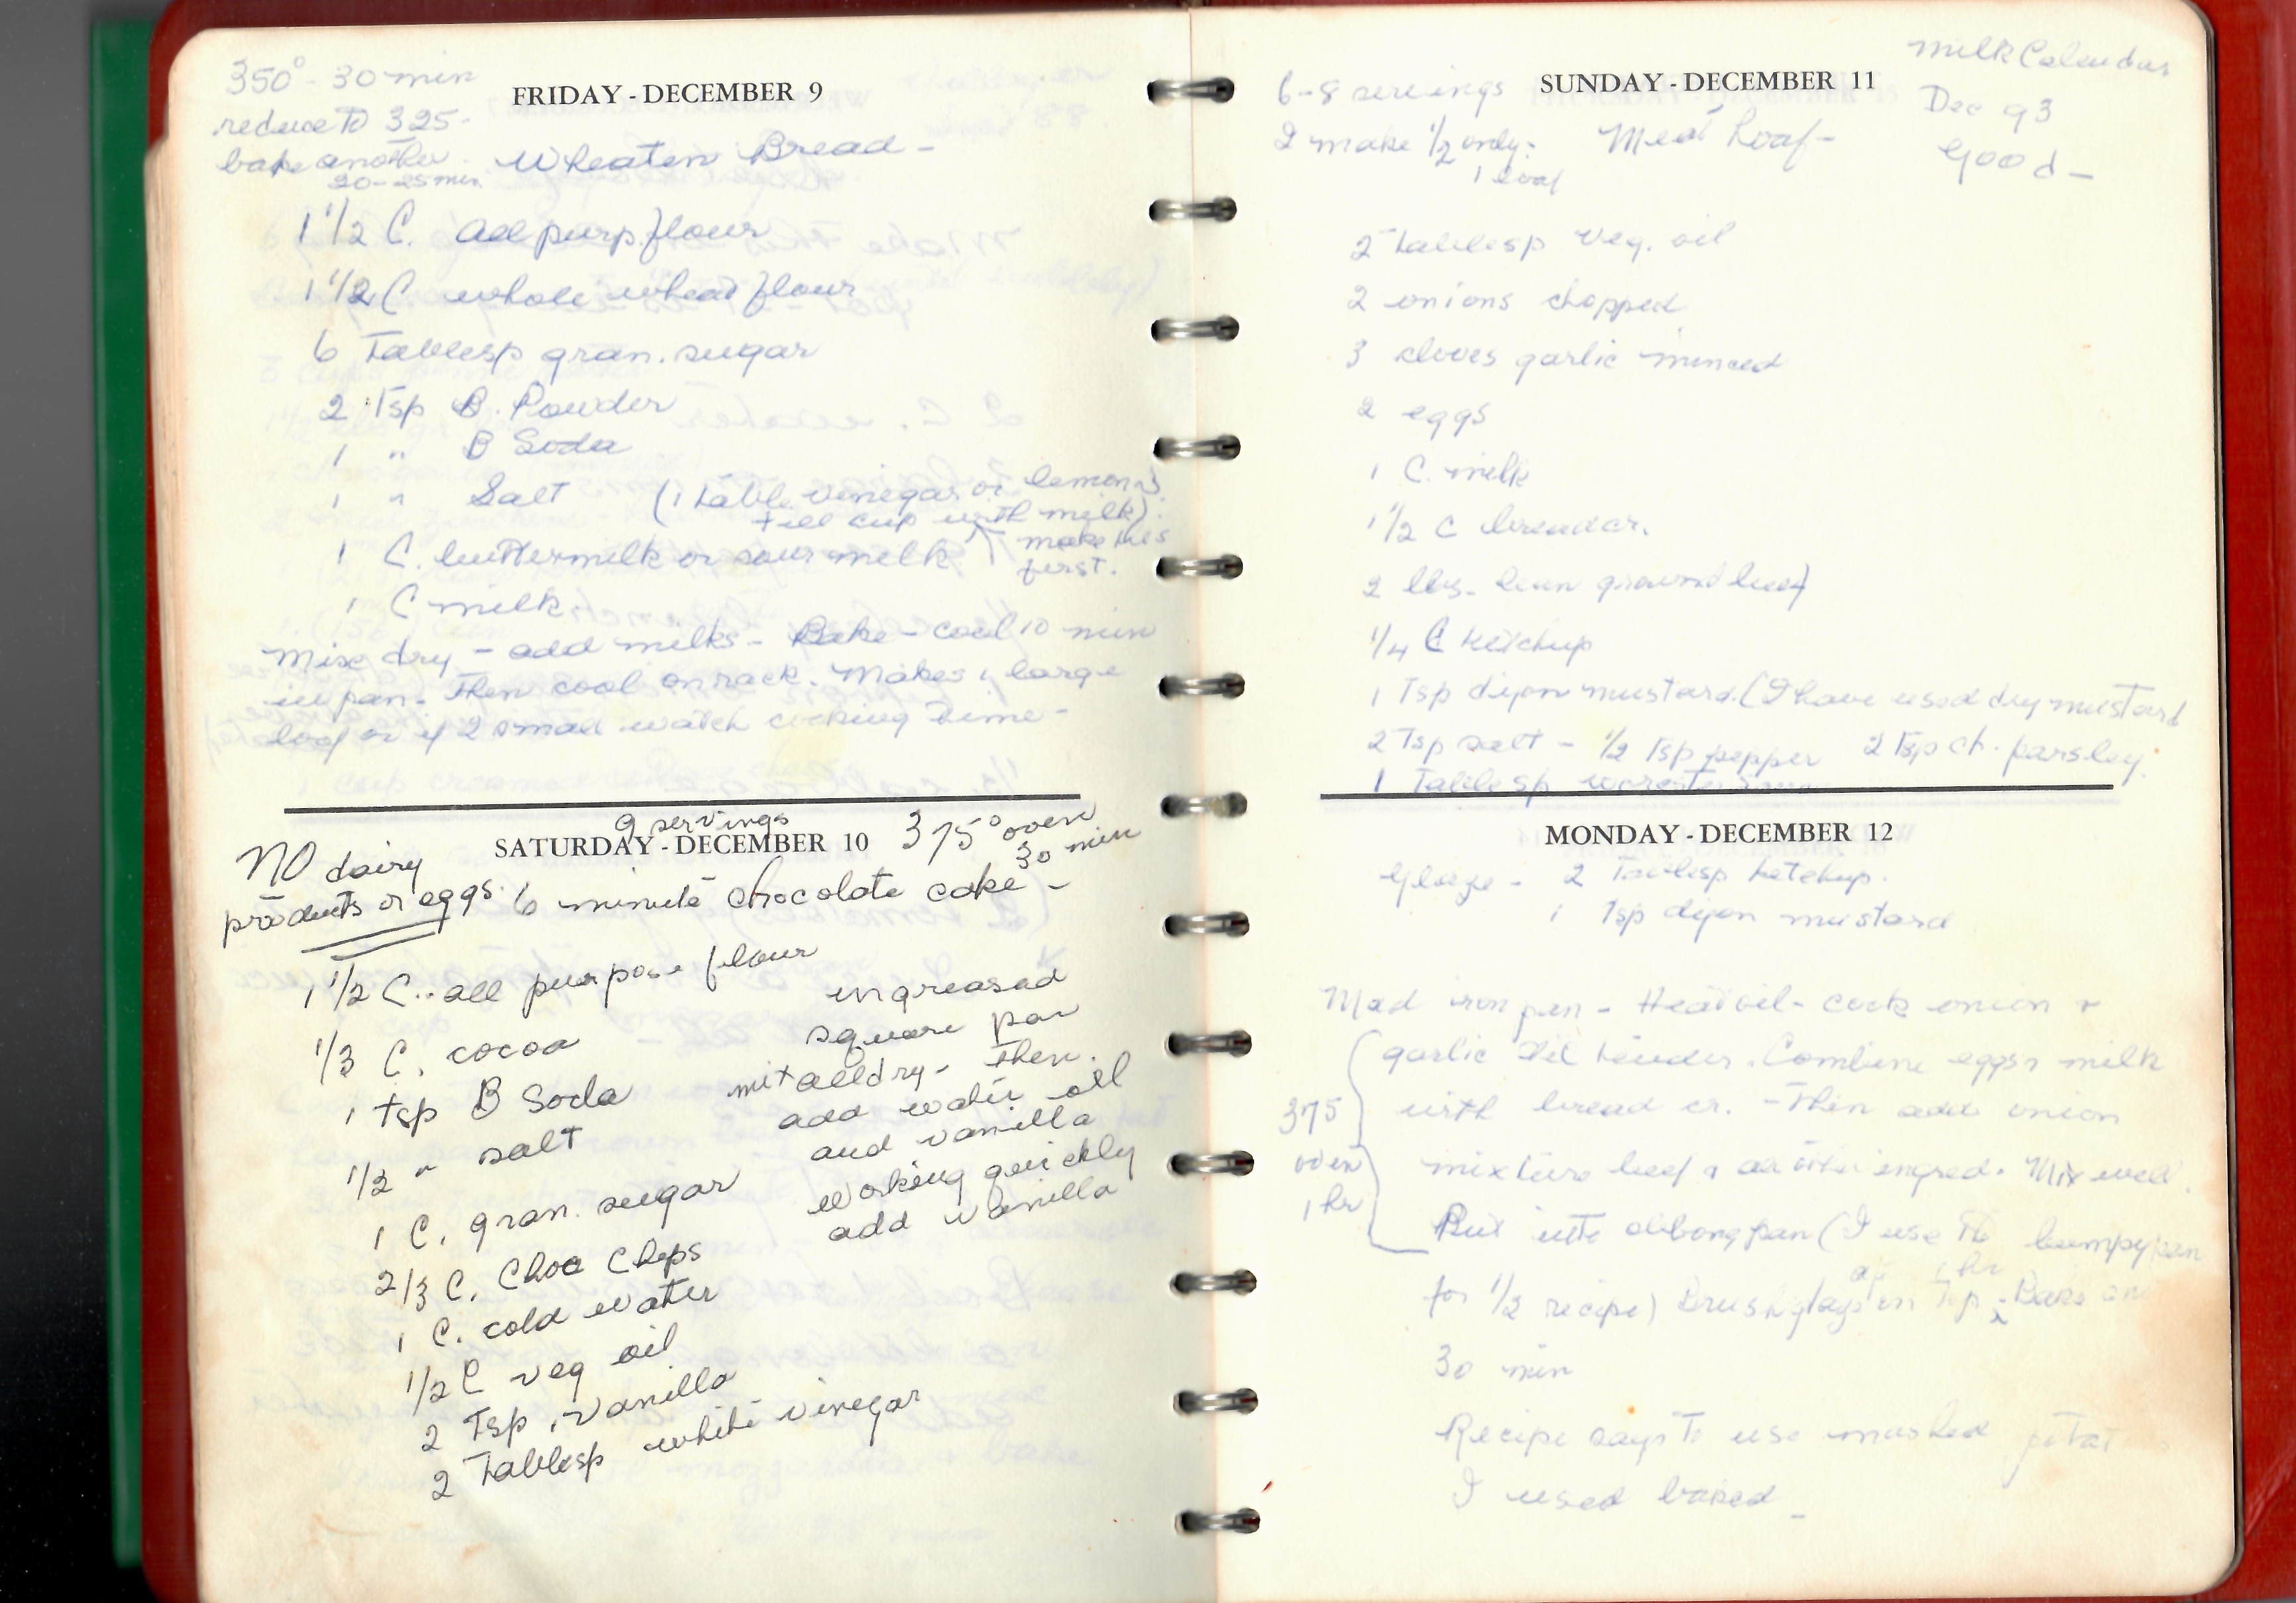 350° - 30 min
reduce to 325-
bake another
20-25 min
FRIDAY - DECEMBER 9
Wheaten Bread -
1 1/2 C. All purp. flour
1 1/2 C whole wheat flour
6 Tablesp gran. sugar
2 Tsp B. Powder
1 " B Soda
1 " Salt (1 table vinegar or lemon
fill cup with milk)
1 C. buttermilk or sour milk make this
first.
1 C milk
Mix dry - add milks - Bake - cool 10 min
in pan. Then cool on rack. Makes 1 large
loaf or if 2 small watch cooking time -
9 servings
SATURDAY - DECEMBER 10
375° oven
30 min
NO dairy
products or eggs. 6 minute chocolate cake -
1 1/2 C. all purpose flour
1/3 C. cocoa
1 tsp B Soda
1/2 " salt
1 C. gran. sugar
2/3 C. Choc Chips
1 C. cold water
1/2 C veg oil
2 Tsp. vanilla
2 Tablesp white vinegar
ungreased
square pan
mix all dry - then.
add water oil
and vanilla
working quickly
add vanilla
SUNDAY - DECEMBER 11
Milk Calendar
Dec 93
Good -
6-8 servings
I make 1/2 only:
1 loaf
Meat Loaf -
2 Tablesp veg. oil
2 onions chopped
3 cloves garlic minced
2 eggs
1 C. milk
1 1/2 C breadcr.
2 lbs. lean ground beef
1/4 C ketchup
1 Tsp dijon mustard. (I have used dry mustard
2 Tsp salt - 1/2 Tsp pepper 2 Tsp ch. parsley.
1 Tablesp worcester
MONDAY - DECEMBER 12
Glaze - 2 Tablesp ketchup.
1 Tsp dijon mustard
Med iron pan - Heat oil - cook onion +
garlic til tender. Combine eggs + milk
with bread cr. - Then add onion
mixture beef + all other ingred. Mix well.
375
oven
1 hr
Put into oblong pan (I use the bumpy pan
for 1/2 recipe) Brush glaze on top - Bake
1 hr
30 min
Recipe says to use mashed
I used baked -